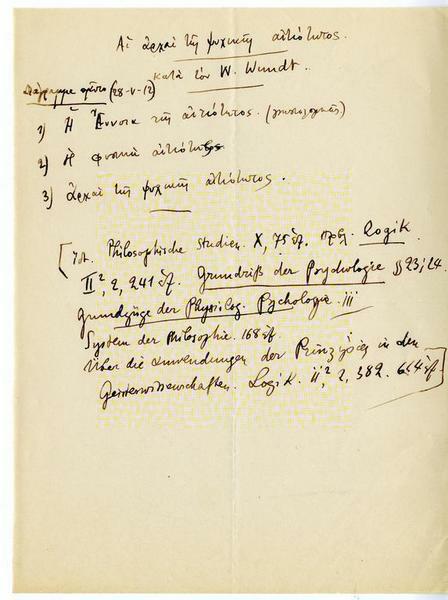 Αἱ ἀρχαὶ τῆς ψυχικῆς αἰτιότητος.
κατὰ τὸν W. Wundt.
Διάγραμμα πρῶτο (28-V-12)
1) Ἡ Ἔννοια τῆς αἰτιότητος.
2) Ἡ φυσικὴ αἰτιότης
3) ἀρχαὶ τῆς ψυχικῆς αἰτιότητος.
Philosophische Studien. X, 75 ἑξ. πρβ. Logik
II², 2, 241 ἑξ. Grundriß der Psychologie §§ 23, 24.
Grundzüge der Physiolog. Pychologie. III
System der Philosophie. 168 ἑξ.
Über die Anwendungen der Prinzipien in den
Geisteswissenschaften. Logik. II² 2, 382. ἑξ